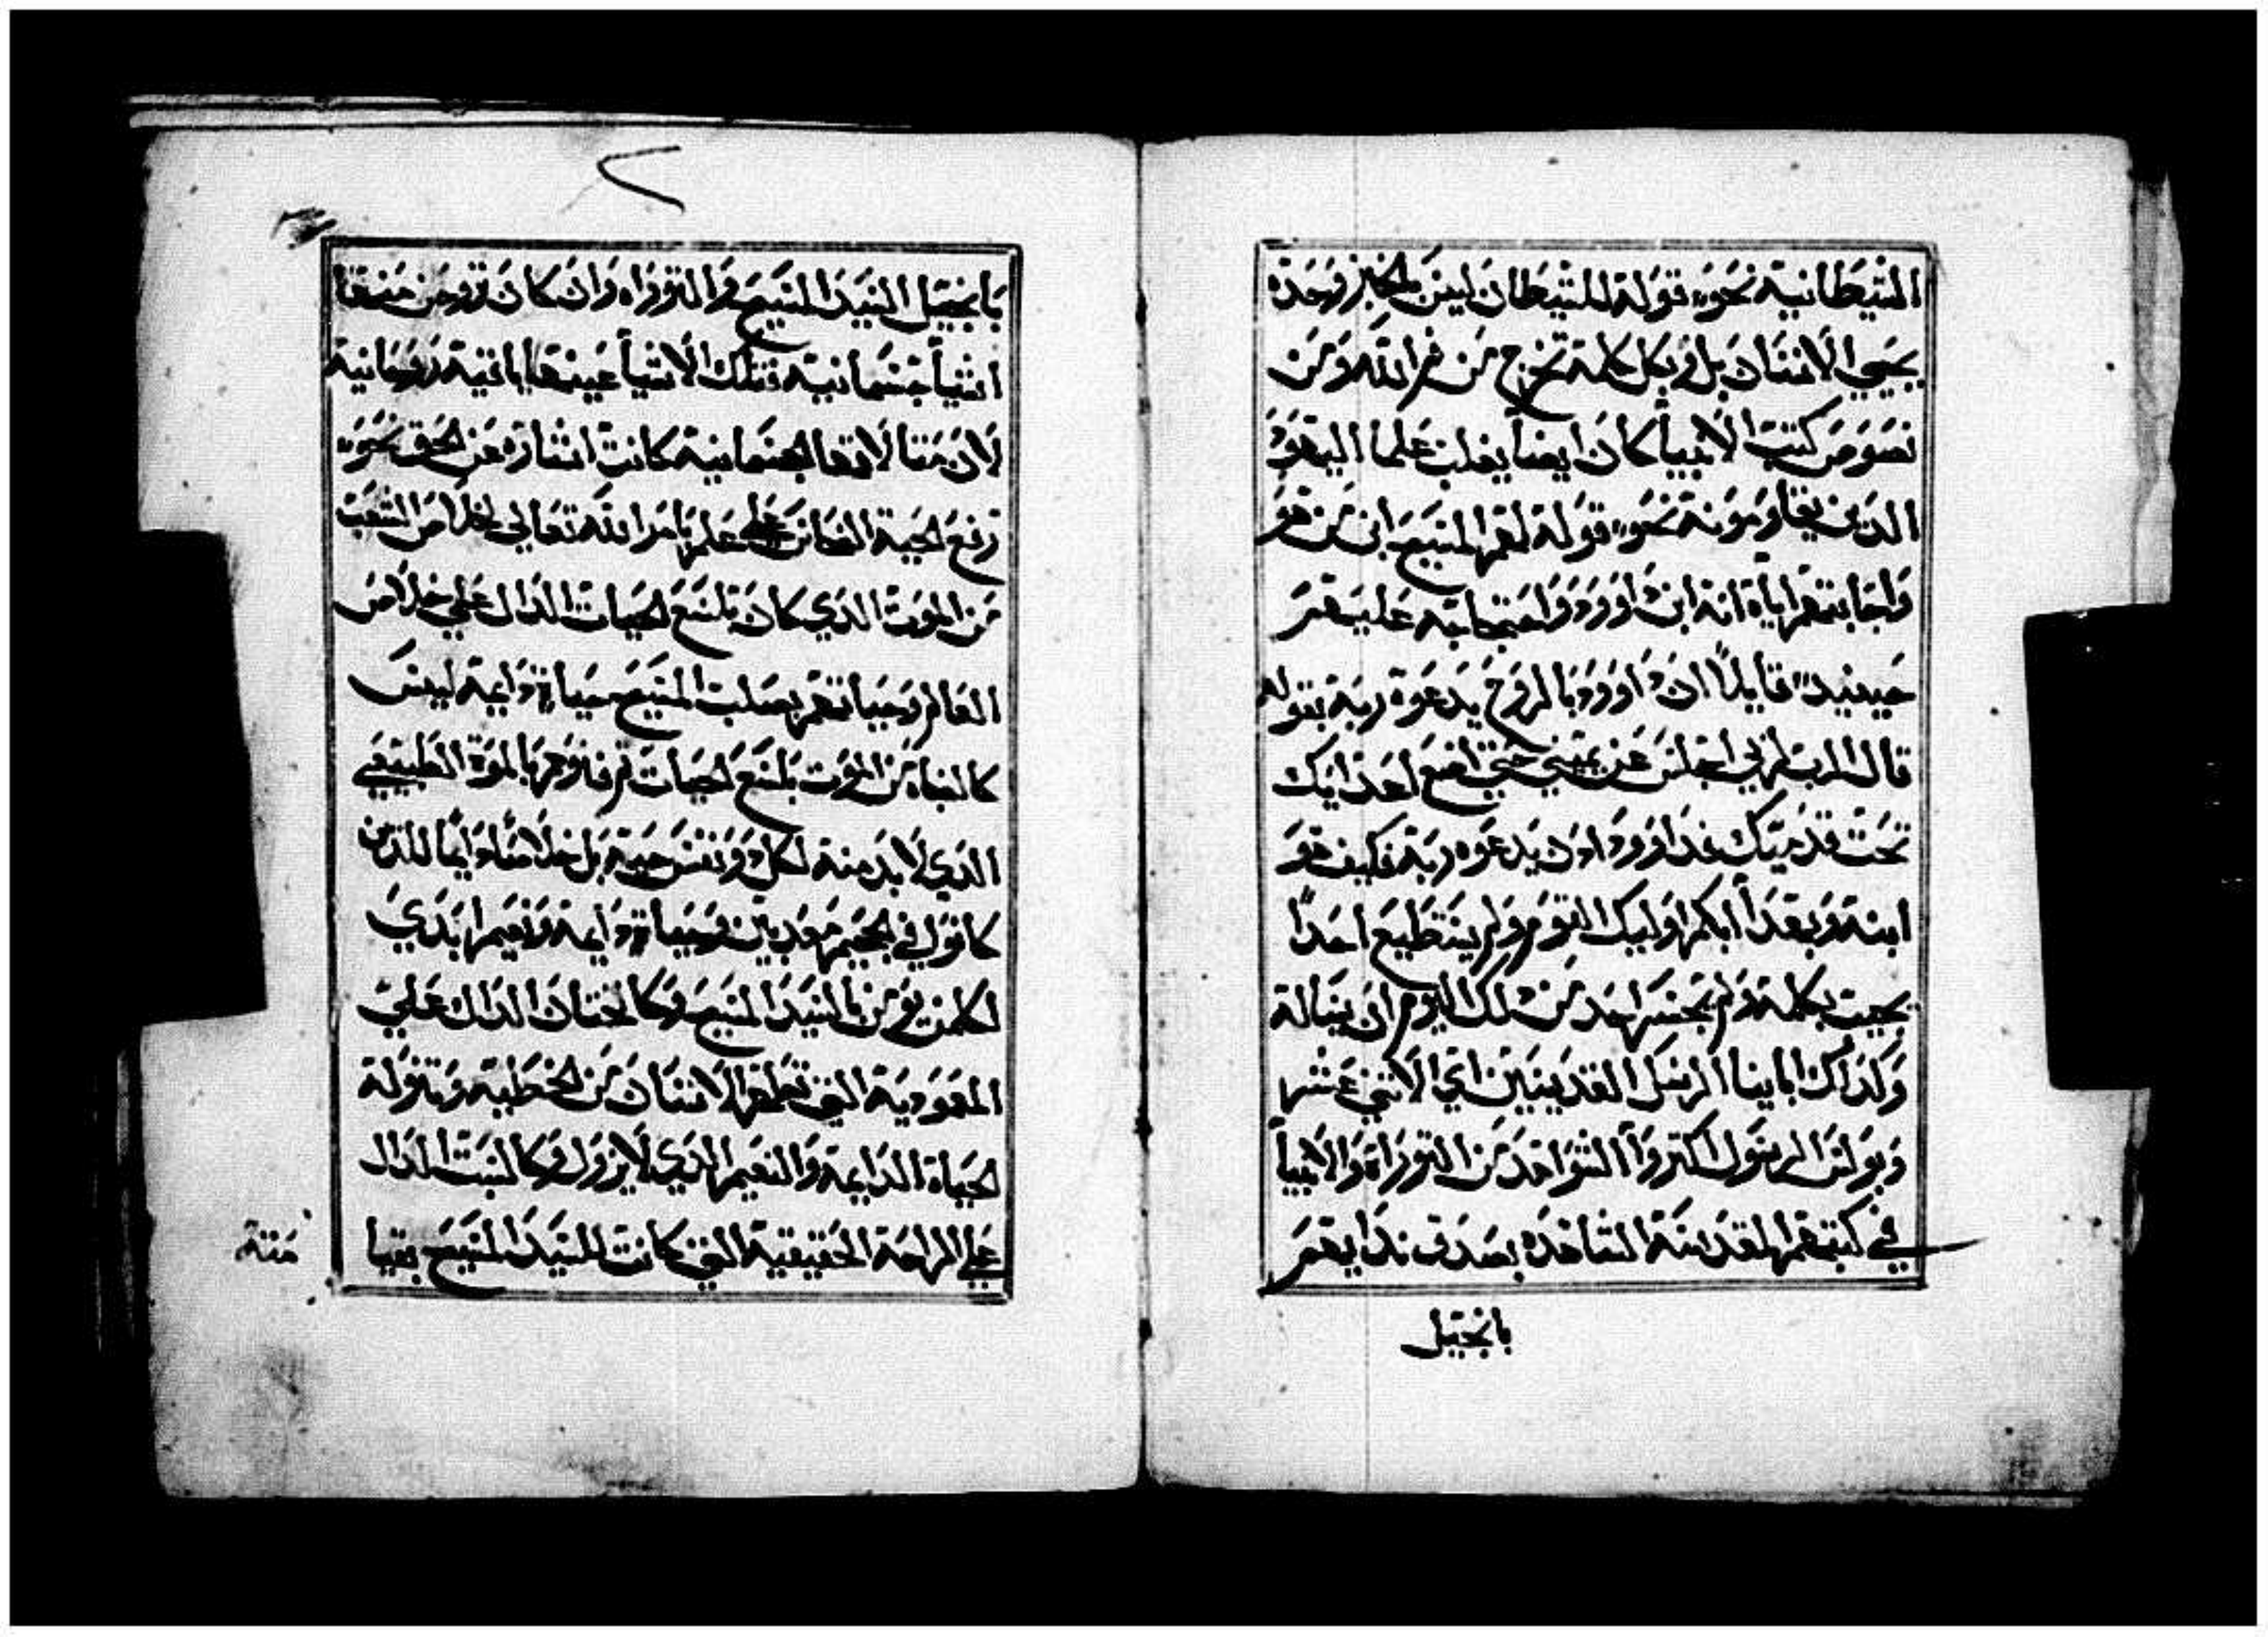 الشيطانية نحو قوله للشيطان ليس بالخبز وحده
يحيي الانسان بل وبكل كلمة تخرج من فم الله ومن
نصوص كتب الانبيأ كان ايضاً يغلب علما اليهود
الدين يقاومونه نحو قوله لهم المسيح ابن من هو
واجابتهم اياه انه ابن داوود واحتجاجه عليهم
حينيد قايلاً ان داوود بالروح يدعوه ربه بقوله
قال الرب لربي اجلس عن يميني حتي اضع اعدايك
تحت قدميك فداوود ادن يدعوه ربه فكيف هو
ابنه وبعدا ابكم اوليك القوم ولم يستطيع احداً
يجيب بكلمة ولم يجسر احد من دلك اليوم ان يساله
وكداك اباينا الرسل القديسين اي الاتني عشر
وبولس الرسول اكتروا الشواهد من التوراة والانبيأ
في كتبهم المقدسة الشاهده بصدق ندايهم
بانجيل
بانجيل السيد المسيح والتوراه وان كان تزوجن منها
اشيأ جسمانية فتلك الاشيأ عينها باقية روحانية
لان متالاتها الجسمانية كانت اشاره عن الحق نحو
رفع الحية النحاس علي علم بامر الله تعالي لخلاص الشعب
من الموت الدي كان بلسع الحيات الدال علي خلاص
العالم وحياتهم بصلب المسيح حياة دايمة ليس
كالنجاه من الموت بلسع الحيات تم فنوهم بالموة الطبيعي
الدي لا بد منه لكل دو نفس حية بل خلاصاً دايماً للدين
كانو في الجحيم معدبين وحياة دايمة ونعيم ابدي
لكلمن يومن بالسيد المسيح وكالختان الدال علي
المعمودية التي تطهر الانسان من الخطية وتوله
الحياة الدايمة والنعيم الدي لا يزول وكالسبت الدال
علي الراحة الحقيقية التي كانت للسيد المسيح بقيا
منه